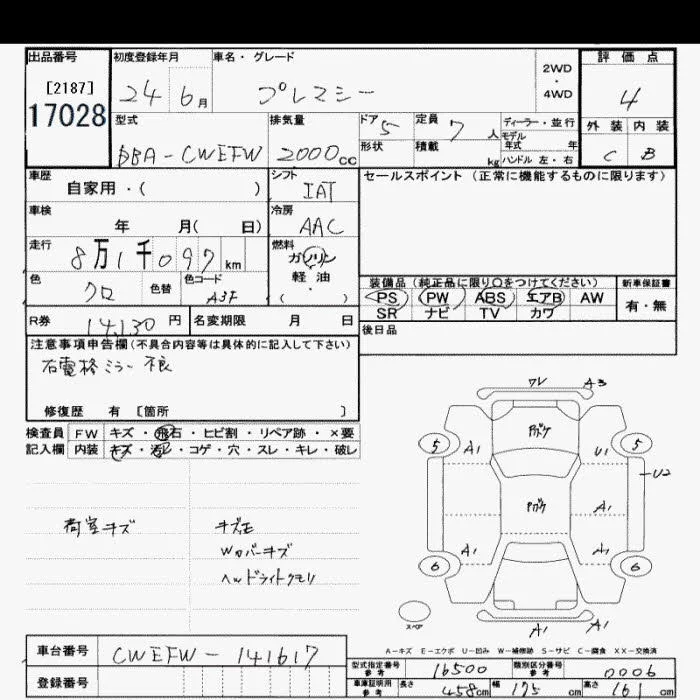 出品番号 初度登録年月 車名・グレード 2WD・4WD 評価点
[2187]
17028
24 6月 プレマシー 4
型式 排気量 ドア 定員 ディーラー・並行 外装 内装
DBA-CWEFW 2000cc 5 7人 モデル年式 年 C B
形状 積載 kg ハンドル 左・右
車歴 シフト セールスポイント(正常に機能するものに限ります)
自家用・( ) IAT
車検 冷房
年 月( 日) AAC
走行 燃料
8万1千097km ガソリン
軽・油
色 色替 色コード 装備品(純正品に限り○をつけてください) 新車保証書
クロ A3F ( ・ ) PS PW ABS エアB AW 有・無
SR ナビ TV カワ
R券 14,130円 名変期限 月 日 後日品
注意事項申告欄(不具合内容等は具体的に記入して下さい)
右電格ミラー不良
修復歴 有 [箇所 ]
検査員 FW キズ・飛石・ヒビ割・リペア跡・×要
記入欄 内装 キズ・汚レ・コゲ・穴・スレ・キレ・破レ
ワレ A3
Pボケ
5 A1 U1 5
U2
Pボケ A1
6 A1 A1 6
スペア
A1 A1
荷室キズ キズモ
Wカバーキズ
ヘッドライトクモリ
A-キズ E-エクボ U-凹み W-補修跡 S-サビ C-腐食 XX-交換済
車台番号 CWEFW-141617
型式指定番号 参考 16500 類別区分番号 参考 0006
登録番号
車庫証明用 参考 長さ 458cm 幅 175cm 高さ 161cm